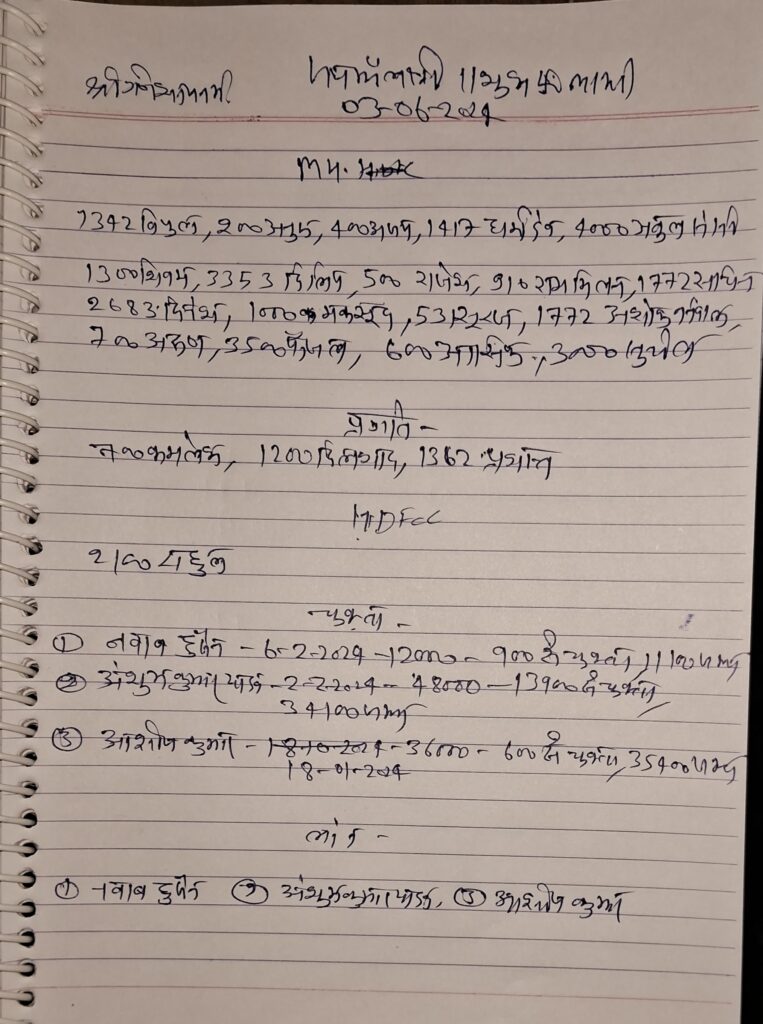 श्री गणेशाय नमः ॥शुभ लाभ॥
03-06-2024
MY.
1342 विपुल, 200 अनुप, 400 अजय, 1417 धर्मेंद्र, 4000 अतुल
1300 शिवम, 3353 दिलिप, 500 राजेश, 910 राम मिलन, 1772 सचिन
2683 दिनेश, 1000 मकसूद, 531 सूरज, 1772 अशोक
700 अरुण, 3500 फैजल, 600 आसिफ, 3000
प्रगति -
700 कमलेश, 1200 दिलशाद, 1362 प्रशान्त
HDFCC
2100 राहुल
चुक्ता -
① नवाब हुसैन - 6-2-2024 - 12000 - 900 से चुक्ता, 11100 जमा
② अंशुम कुमार यादव - 2-2-2024 - 48000 - 13900 से चुक्ता
34100 जमा
③ आशीष कुमार - 18-10-2024 - 36000 - 600 से चुक्ता, 35400 जमा
18-01-2024
लोन -
① नवाब हुसैन ② अंशुम कुमार यादव, ③ आशीष कुमार